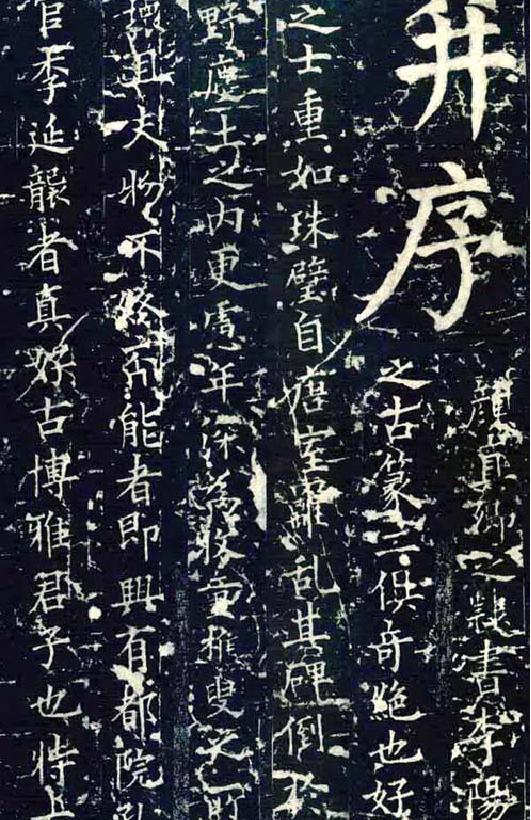 并序
顏真卿之隸書李陽
之古篆二俱奇絕也好
之士重如珠璧自唐室離乱其碑倒於
野塵土之內更慮年深為牧童樵叟之所
壞且夫物不終否能者即興有都院孔
官李延襲者真好古博雅君子也特上